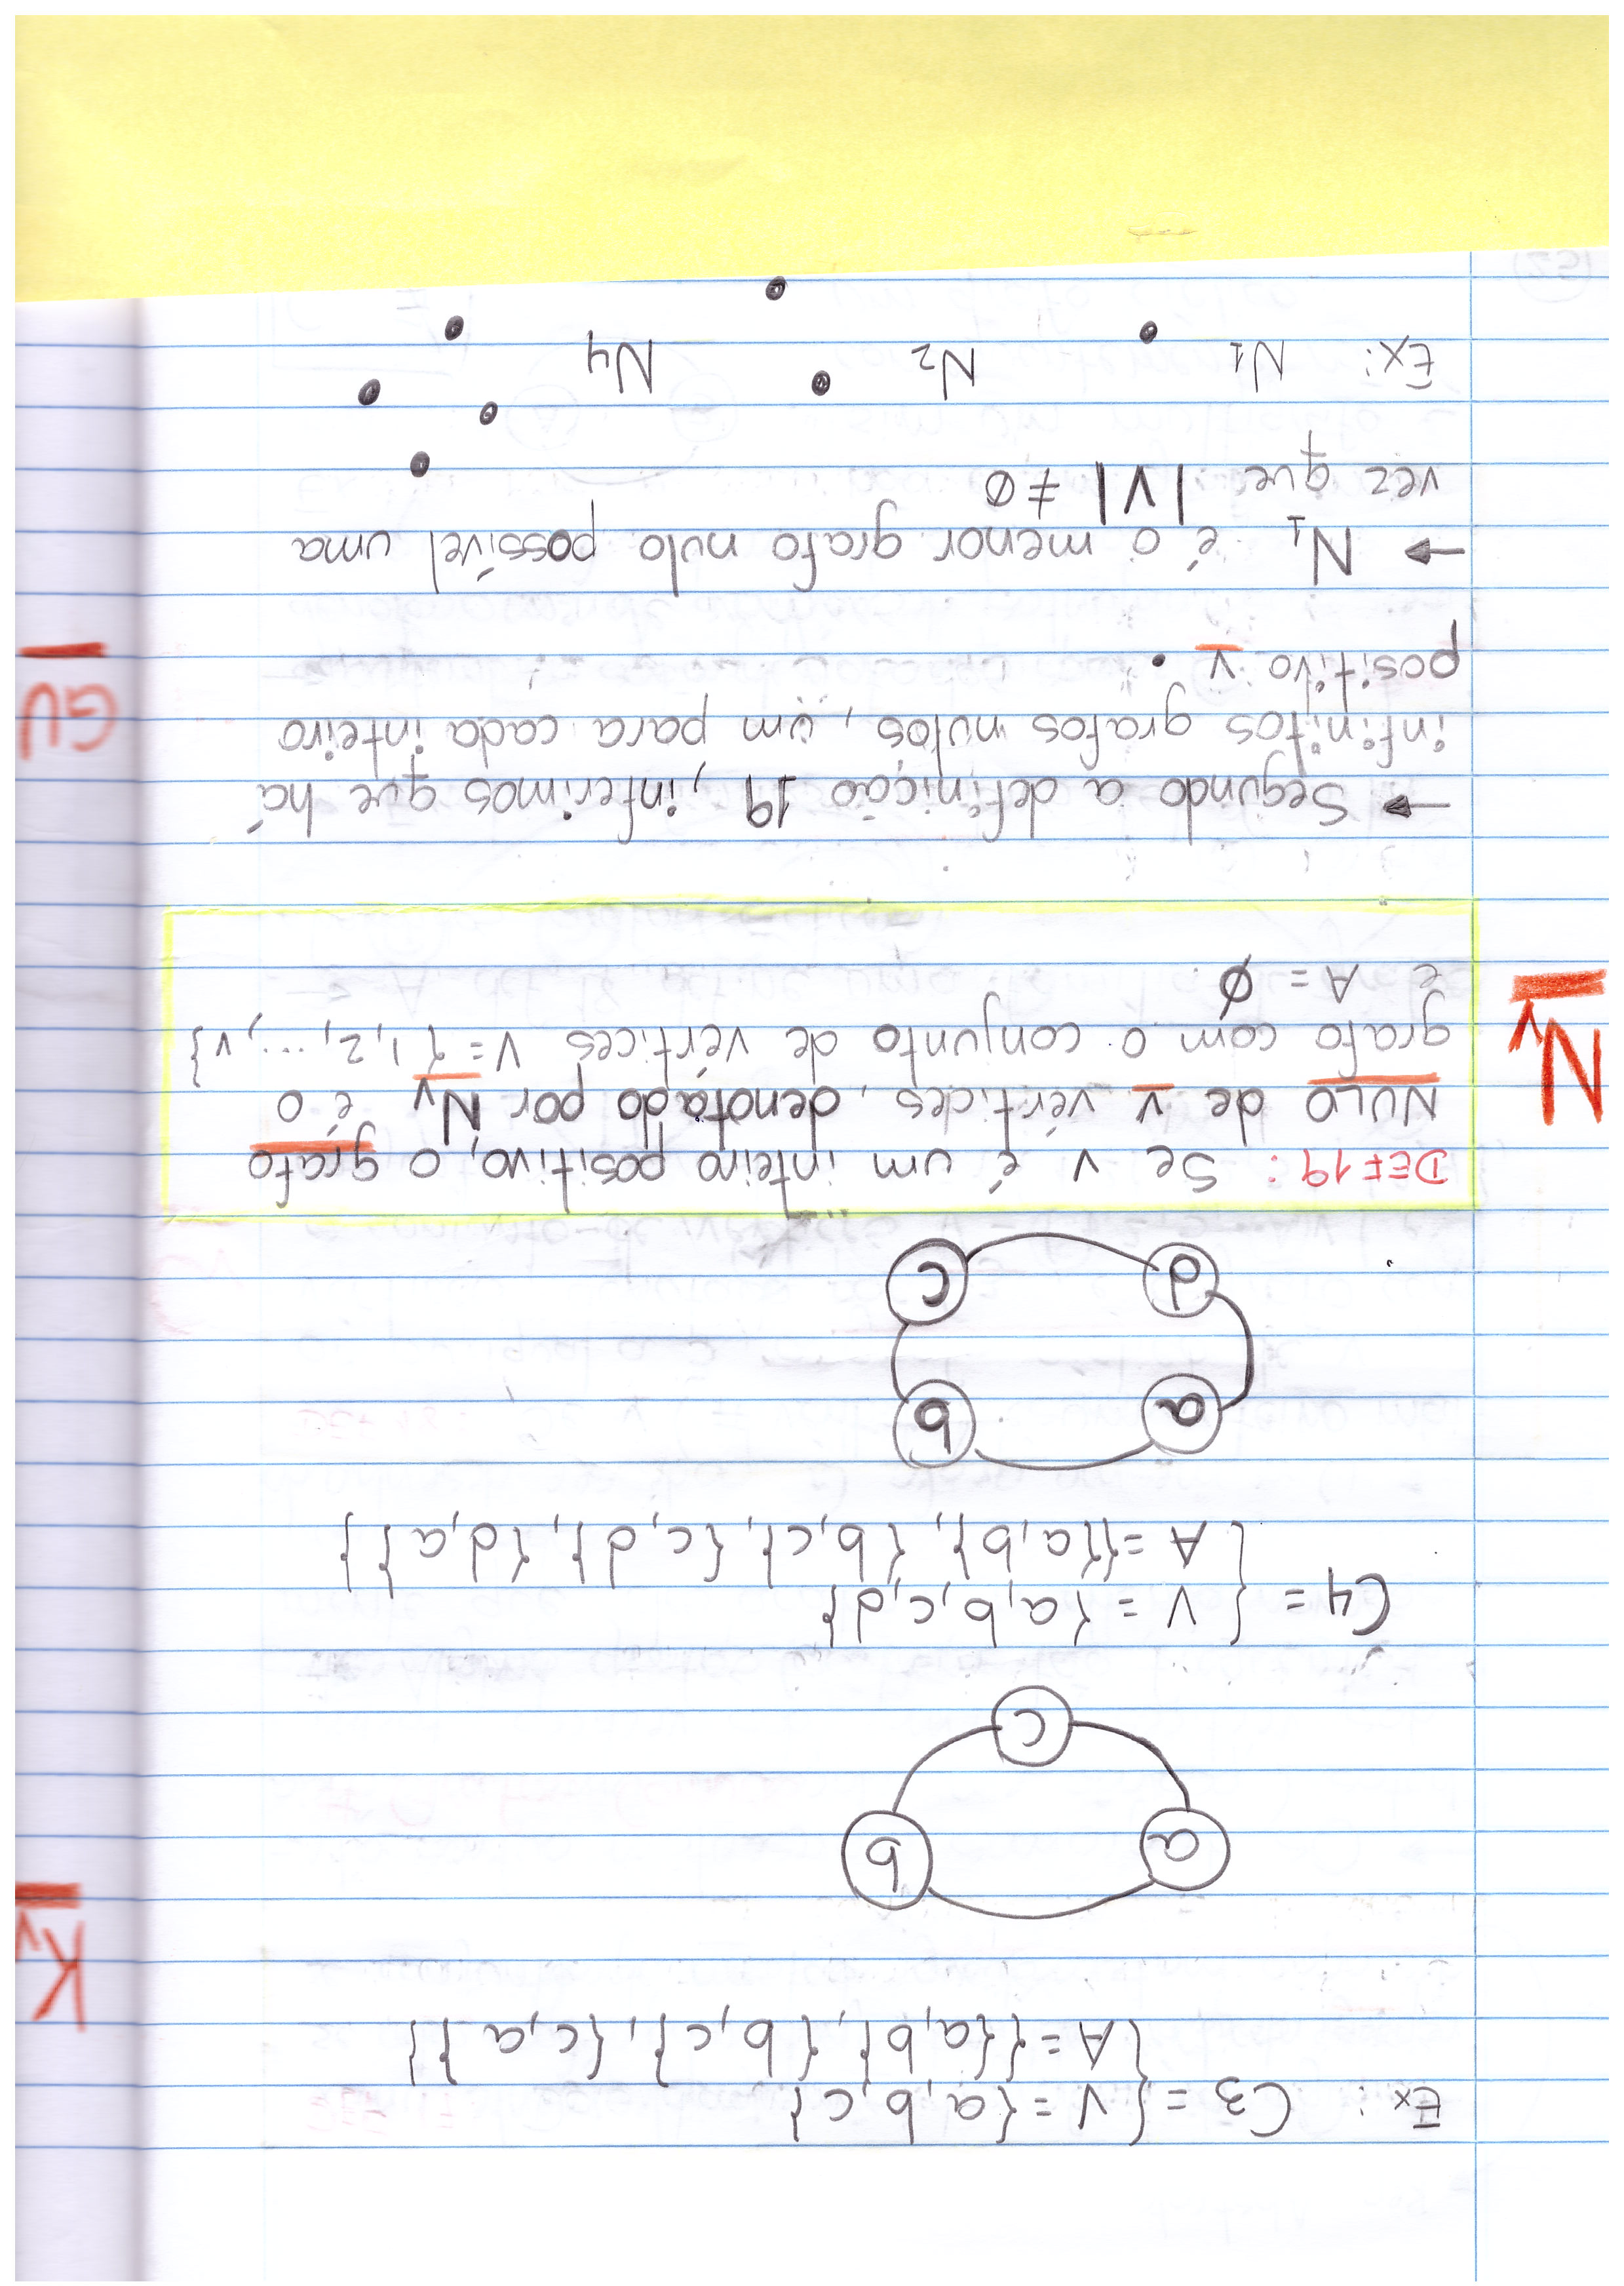 Ex: C3 = { V = {a,b,c}
A = {{a,b}, {b,c}, {c,a}}
Kv
a
b
c
C4 = { V = {a,b,c,d}
A = {{a,b}, {b,c}, {c,d}, {d,a}}
a
b
d
c
DEF19: Se v é um inteiro positivo, o grafo
NULO de v vértices, denotado por Nv é o
Nv
grafo com o conjunto de vértices V = {1, 2, ..., v}
e A = ∅.
→ Segundo a definição 19, inferimos que há
infinitos grafos nulos, um para cada inteiro
GU
positivo v.
→ N1 é o menor grafo nulo possível uma
vez que |V| ≠ ∅
Ex: N1 N2 N4